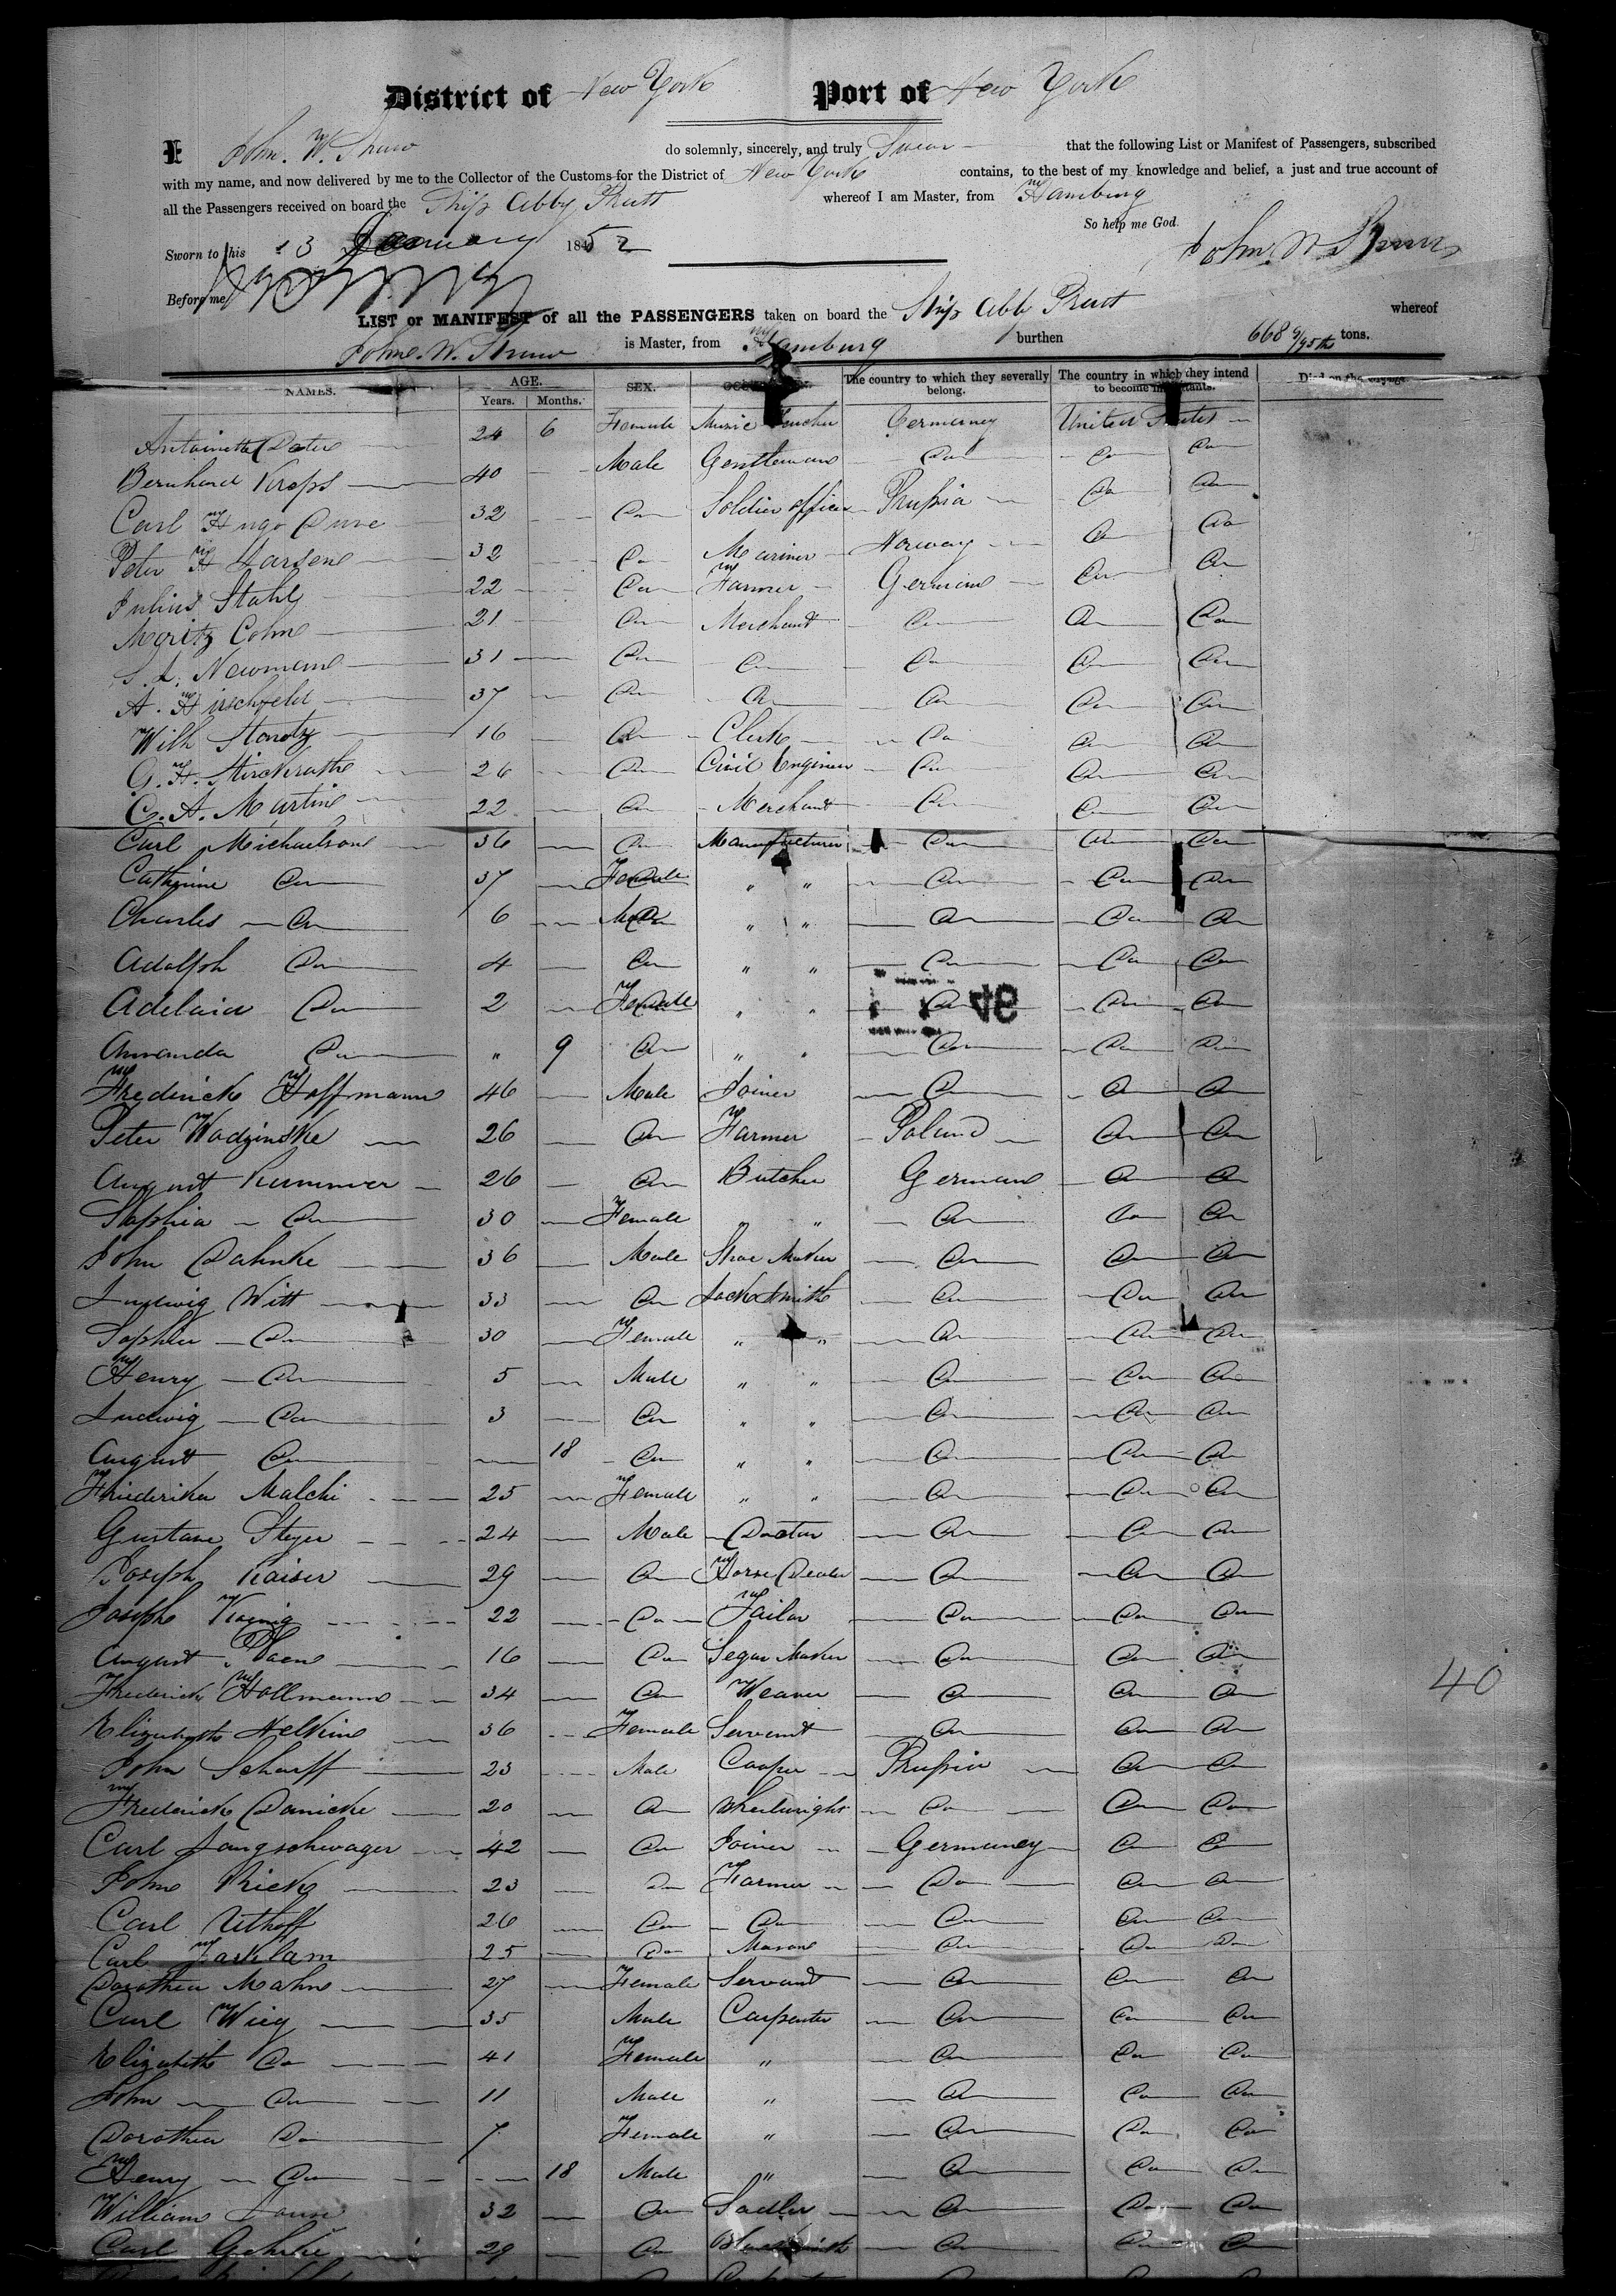 District of New York Port of New York
I John. W. Spruw do solemnly, sincerely, and truly Swear that the following List or Manifest of Passengers, subscribed
with my name, and now delivered by me to the Collector of the Customs for the District of New York contains, to the best of my knowledge and belief, a just and true account of
all the Passengers received on board the Ship Abby Pratt whereof I am Master, from Hamburg
So help me God.
Sworn to this 13 January 1852 John. W.
Before me
LIST or MANIFEST of all the PASSENGERS taken on board the Ship Abby Pratt whereof
John. W. is Master, from Hamburg burthen 668 9/95th tons.
NAMES. AGE. SEX. OCCUPATION. The country to which they severally belong. The country in which they intend to become inhabitants. Died on the voyage.
Years. Months.
Antoinette 24 6 Female Music Teacher Germaney United States
Bernhard Kreps 40 Male Gentleman Do Do Do
Carl Hugo 32 Do Soldier officer Prussia Do Do
Peter H Larsen 32 Do Mariner Norway Do Do
Julius Stahl 22 Do Farmer German Do Do
Moritz Cohn 21 Do Merchant Do Do Do
S. L. Newman 31 Do Do Do Do Do
A. Hirschfeld 37 Do Do Do Do Do
Wilh 16 Do Clerk Do Do Do
G. H. 26 Do Civil Engineer Do Do Do
C. A. Martin 22 Do Merchant Do Do Do
Carl Michaelson 36 Do Manufacturer Do Do Do
Catharine Do 37 Female " " Do Do Do
Charles Do 6 Male " " Do Do Do
Adolph Do 4 Do " " Do Do Do
Adelaid Do 2 Female " " Do Do Do
Amanda Do " 9 Do " " Do Do Do
Frederick Hoffmann 46 Male Joiner Do Do Do
Peter Wadzinske 26 Do Farmer Poland Do Do
August Kummer 26 Do Butcher German Do Do
Sophia Do 30 Female " " Do Do Do
John Dahnke 36 Male Shoe Maker Do Do Do
Ludwig Witt 33 Do Lock Smith Do Do Do
Sophia Do 30 Female " " Do Do Do
Henry Do 5 Male " " Do Do Do
Ludwig Do 3 Do " " Do Do Do
August Do 18 Do " " Do Do Do
Friederika Malchi 25 Female " " Do Do Do
Gustave Steyer 24 Male Doctor Do Do Do
Joseph Kaiser 29 Do Horse Dealer Do Do Do
Joseph Koenig 22 Do Tailor Do Do Do
August 16 Do Segar Maker Do Do Do
Frederick Hollmann 34 Do Weaver Do Do Do
40
Elizabeth 36 Female Servant Do Do Do
John Scharff 23 Male Cooper Prussia Do Do
Frederick Danicke 20 Do Wheelwright Do Do Do
Carl Langschwager 42 Do Joiner Germaney Do Do
John Rick 23 Do Farmer Do Do Do
Carl Uthoff 26 Do Do Do Do Do
Carl 25 Do Mason Do Do Do
Dorothea Mahn 27 Female Servant Do Do Do
Carl Wieg 35 Male Carpenter Do Do Do
Elizabeth Do 41 Female " Do Do Do
John Do 11 Male " Do Do Do
Dorothea Do 7 Female " Do Do Do
Henry Do 18 Male " Do Do Do
William 32 Do Sadler Do Do Do
Carl 29 Do Blacksmith Do Do Do